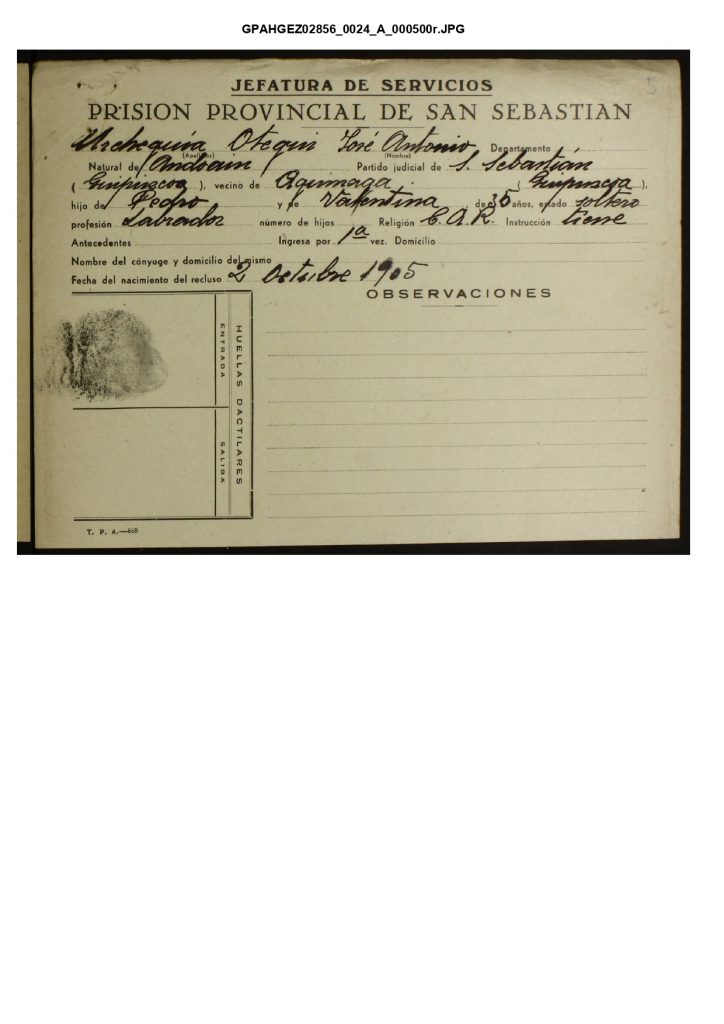 GPAHGEZ02856_0024_A_000500r.JPG
5
JEFATURA DE SERVICIOS
PRISION PROVINCIAL DE SAN SEBASTIAN
Urcheguía Otegui José Antonio Departamento
(Apellidos) (Nombre)
Natural de Andoain Partido judicial de S. Sebastián
( Guipuscoa ), vecino de Aguinaga ( Guipuscoa ),
hijo de Pedro y de Valentina, de 35 años, estado soltero
profesión Labrador número de hijos Religión C. A. R. Instrucción tiene
Antecedentes Ingresa por 1ª vez. Domicilio
Nombre del cónyuge y domicilio del mismo
Fecha del nacimiento del recluso 2 Octubre 1905
OBSERVACIONES
ENTRADA
SALIDA
HUELLAS DACTILARES
T. P. A.—668